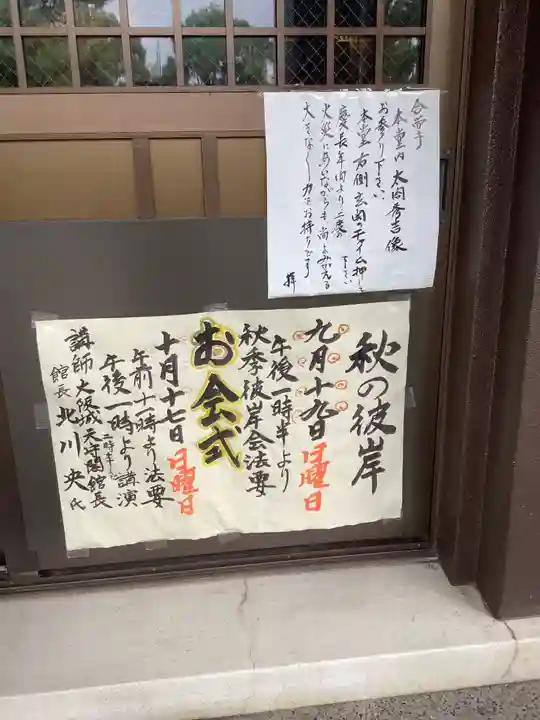 合掌
本堂内 太閤秀吉像
お参り下さい
本堂右側玄関のチャイム押して
下さい
慶長年間より二度の
火災にあいながらも尚よみがえる
大きなしカをお持ちです
拝
秋の彼岸
九月十九日 日曜日
午後一時半より
秋季彼岸会法要
お会式
十月十七日 日曜日
午前十一時より法要
午後一時より講演
二時半まで
講師 大阪城天守閣館長
館長 北川 央氏